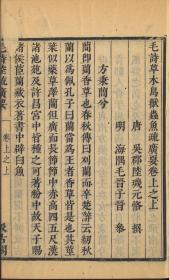 毛詩草木鳥獸蟲魚疏廣要卷上之上
唐 吳郡陸璣元恪 撰
明 海隅毛晉子晉 參
方秉蕑兮
蕑即蘭香草也春秋傳曰刈蘭而卒楚辭云紉秋
蘭以爲佩孔子曰蘭當爲王者香草皆是也其莖
葉似藥草澤蘭但廣而長節節中赤高四五尺漢
諸池苑及許昌宮中皆種之可著粉中故天子賜
諸侯茝蘭藏衣著書中辟白魚
毛詩陸疏廣要 卷上之上 汲古閣